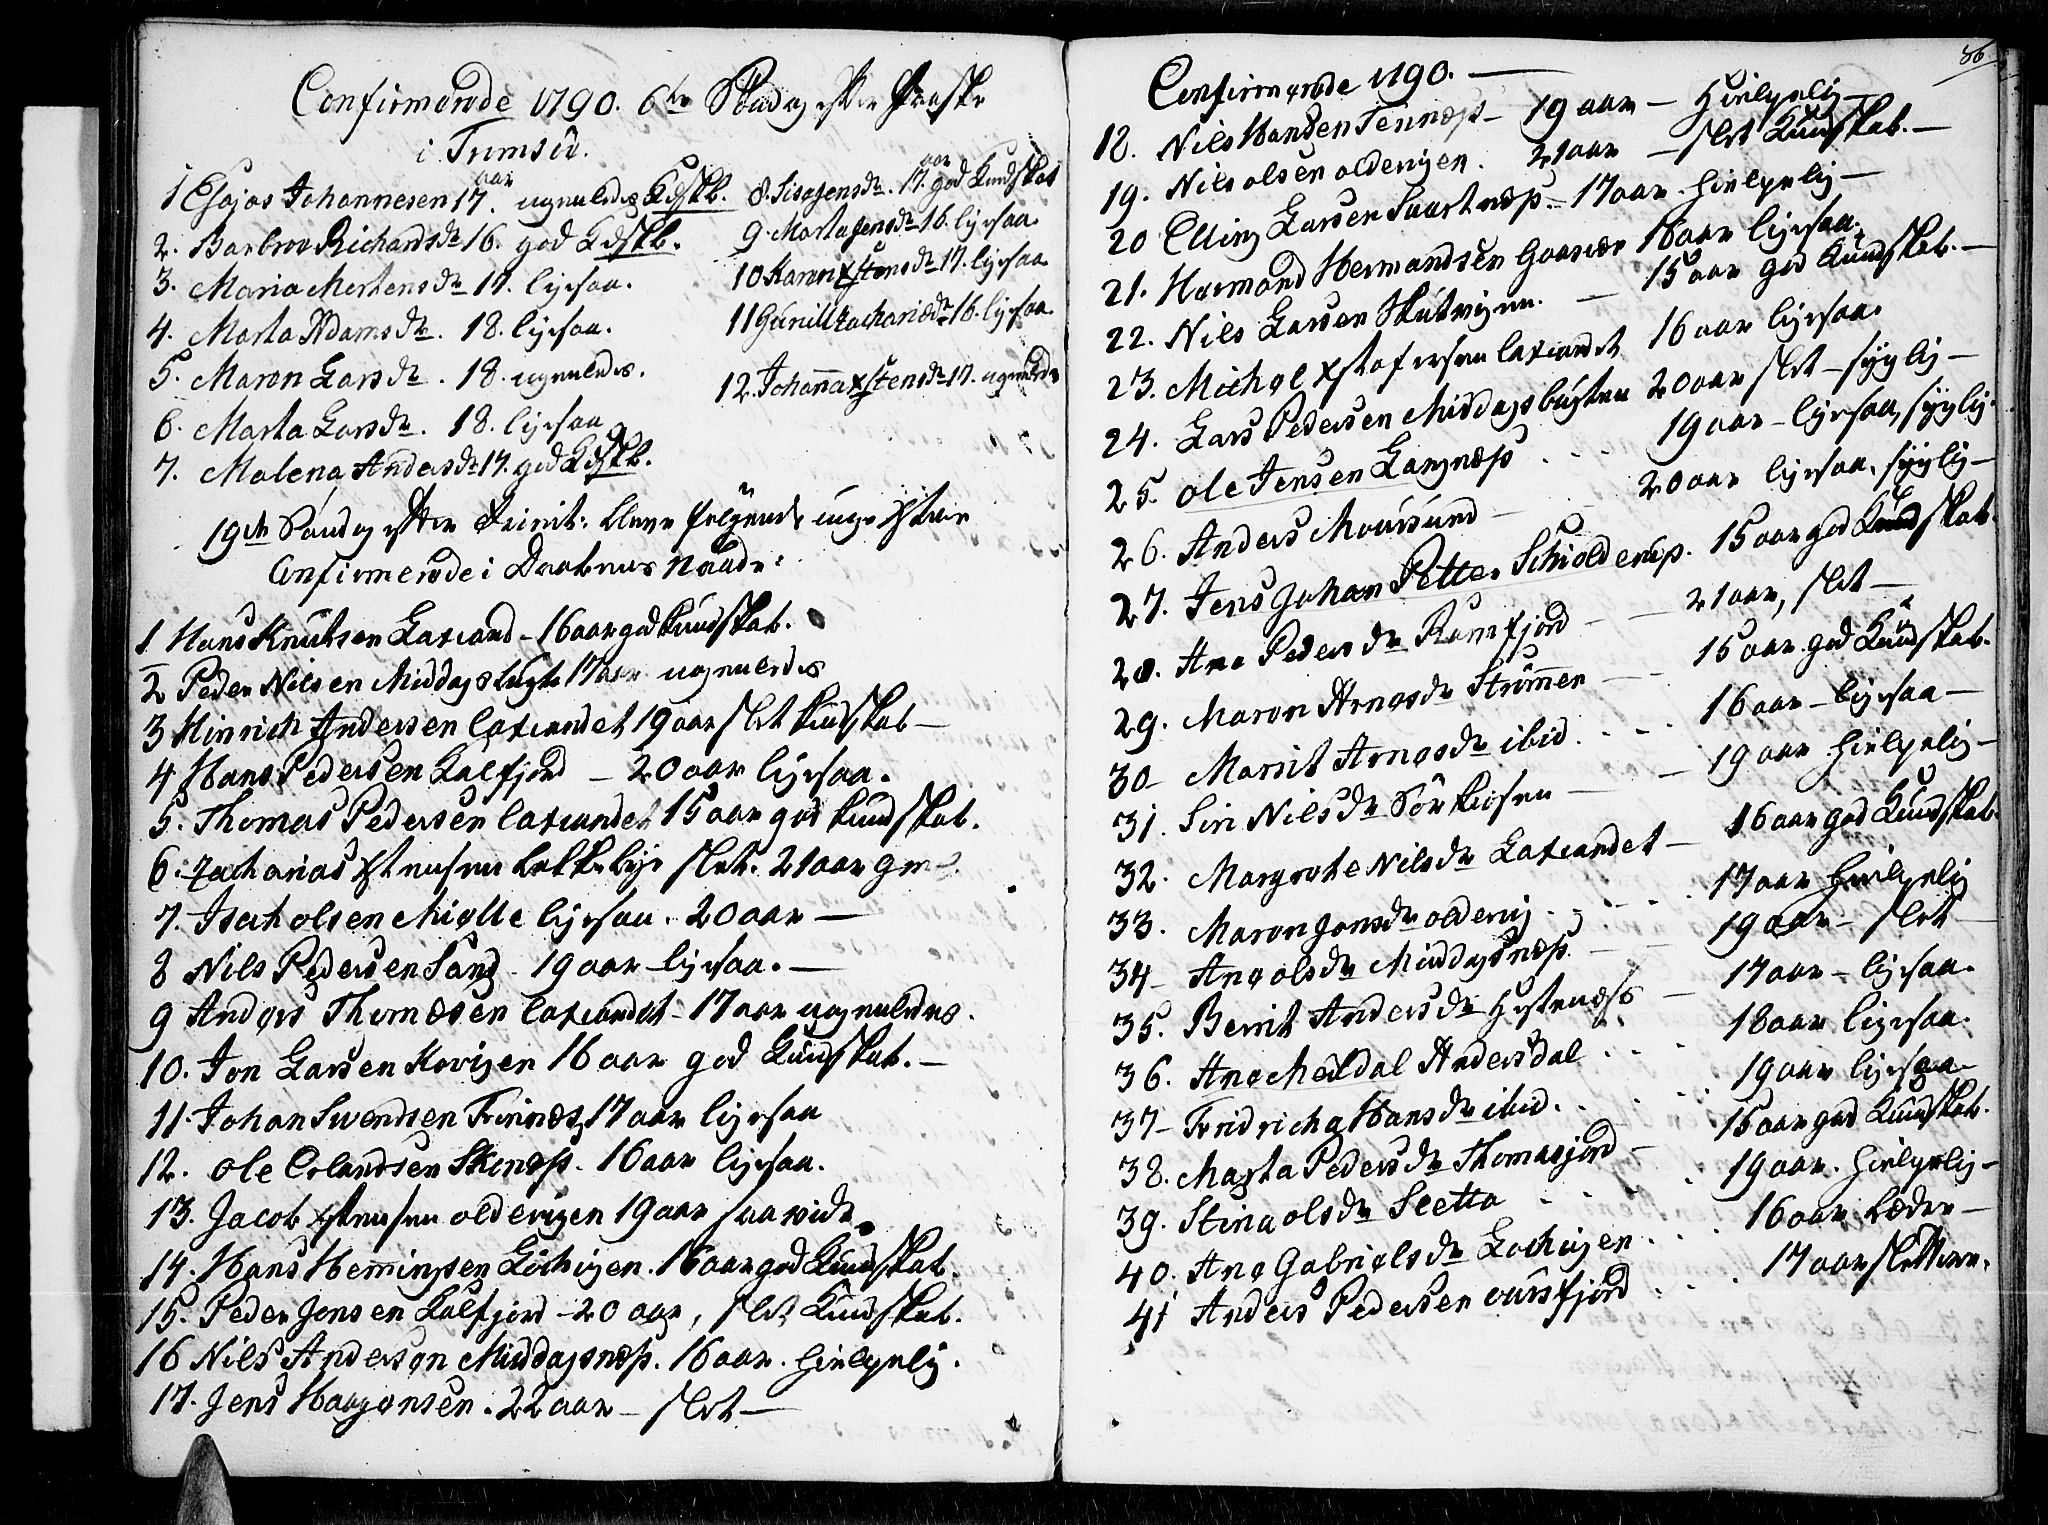 Confirmerede 1790. 6te Søndag efter Paaske
i Tromsöe.
1 Esajas Johannesen 17 aar ugemeen Kdskb.
2. Barbroe Richardsdr 16. god Kdskb.
3. Maria Mortensdr 17. ligesaa.
4. Marta Adamsdr. 18. ligesaa.
5. Maren Larsdr. 18. ugemeen.
6. Marta Larsdr. 18. ligesaa
7. Malena Andersdr 17. god Kdskb.
8. Sisa Jensdr. 17. aar god Kundskab
9. Marta Jensdr 16. ligesaa.
10 Karen Xstensdr 17. ligesaa
11 Gunill Zachariædr 16. ligesaa.
12. Johanna Xstensdr 17.
19de Söndag efter Trinit: bleve fölgende unge Xstne
Confirmerede i
1 Hans Knutsen Laxvand - 16 aar god Kundskab.
2 Peder Nilsen Middagsbugt 17 aar
3 Hinrich Andersen laxvandet 19 aar slet Kundskab -
4 Hans Pedersen Kalfjord - 20 aar ligesaa.
5. Thomas Pedersen laxvandet 15 aar god Kundskab.
6. Zacharias Xstensen slet. 21 aar
7. Isach olsen Mielle ligesaa. 20 aar -
8 Nils Pedersen Sand - 19 aar ligesaa. -
9 Anders Thomæsen laxvandet - 17 aar
10. Jon Larsen Kovigen 16 aar god Kundskab. -
11. Johan Swendsen 17 aar ligesaa
12. Ole Erlandsen 16 aar ligesaa.
13. Jacob Xstensen oldervigen 19 aar saa vidt
14. Hans Hemmingsen Löchvigen. 16 aar god Kundskab.
15. Peder Jonsen Kalfjord - 20 aar, slet Kundskab.
16 Nils Andersen Middagsnæss. 16 aar. hielpelig.
17. Jens Haagensen. 22 aar - slet -
86
Confirmerede 1790. -
18. Nils Hansen Tennæss - 19 aar - hielpelig -
19. Nils olsen oldervigen. 21 aar - slet Kundskab. -
20 Elling Larsen Svartnæss. - 17 aar. hielpelig -
21. Harmand Hermandsen Gaasvær 18 aar ligesaa.
22. Nils Larsen Skutvigen. - 15 aar god Kundskab. -
23. Michel Xstofersen laxvandet 16 aar ligesaa.
24. Lars Pedersen Middagsbugten 20 aar slet - sygelig -
25. Ole Jensen Langnæss . . 19 aar - ligesaa, sygelig.
26. Anders Moursund - 20 aar ligesaa, sygelig -
27. Jens Johan Petter Schiolderup. 15 aar god Kundskab.
28. Ane Pedersdr Ramfjord - - 21 aar, slet -
29. Maren Arnesdr Strömmen - - 15 aar god Kundskab.
30 - Marit Arnesdr ibid. . - - 16 aar - ligesaa -
31. Siri Nilsdr - - 19 aar hielpelig -
32. Margrete Nilsdr Laxvandet - 16 aar god Kundskab.
33. Maren Jonsdr oldervig . . . 17 aar hielpelig
34 - Ane olsdr Middagsnæss. - - 19 aar - slet -
35. Berrit Andersdr - 17 aar - ligesaa.
36. Ane Meldal Andersdal . . . 18 aar ligesaa.
37 - Fridricha Hansdr ibid. . . . 19 aar ligesaa -
38. Marta Pedersdr Thomasjord - 15 aar god Kundskab.
39. Stina olsdr Sletta . . . 19 aar. hielpelig -
40. Ane Gabrielsdr Lochvigen . . . 16 aar bedre -
41 Anders Pedersen oursfjord . . . 17 aar slettere.